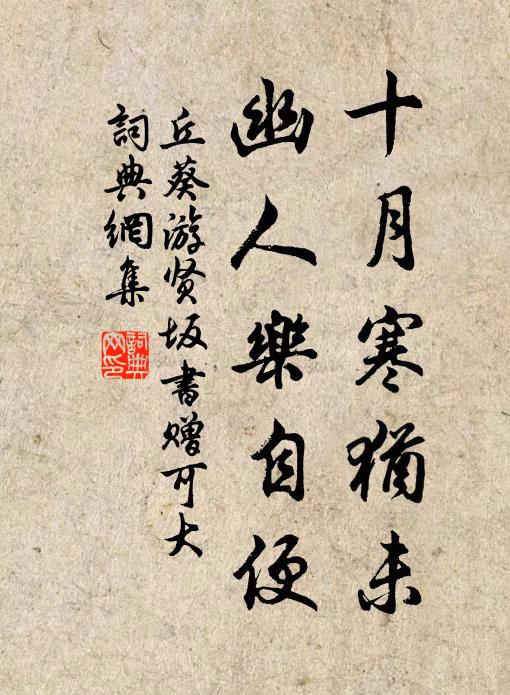 十月寒猶未
幽人樂自便
丘葵游贤坂書贈可大
詞典網集
詞典網印